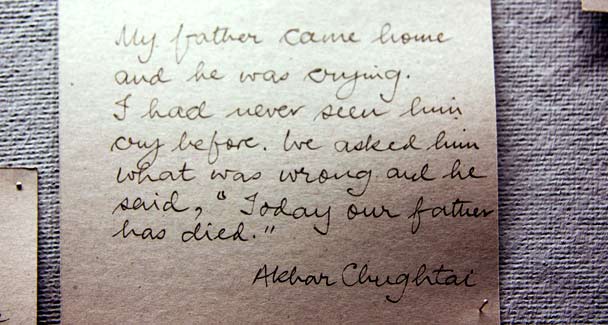 My father came home
and he was crying.
I had never seen him
cry before. We asked him
what was wrong and he
said, "Today our father
has died."
Akbar Chughtai